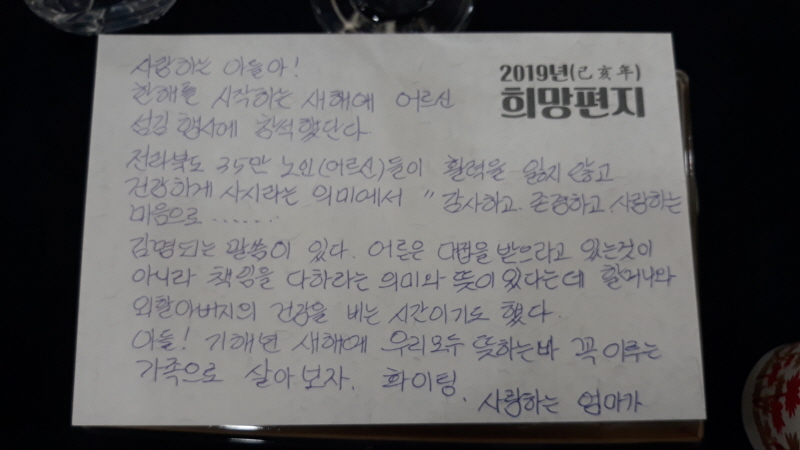 2019년(己亥年)
희망편지
사랑하는 아들아!
한해를 시작하는 새해에 어르신
섬김 행사에 참석했단다
전라북도 35만 노인(어르신)들이 활력을 잃지 않고
건강하게 사시라는 의미에서 " 감사하고. 존경하고, 사랑하는
마음으로 ......
감명되는 말씀이 있다. 어른은 대접을 받으라고 있는것이
아니라 책임을 다하라는 의미와 뜻이 있다는데 할머니와
외할아버지의 건강을 비는 시간이기도 했다.
아들! 기해년 새해에 우리모두 뜻하는바 꼭 이루는
가족으로 살아보자. 화이팅.
사랑하는 엄마가